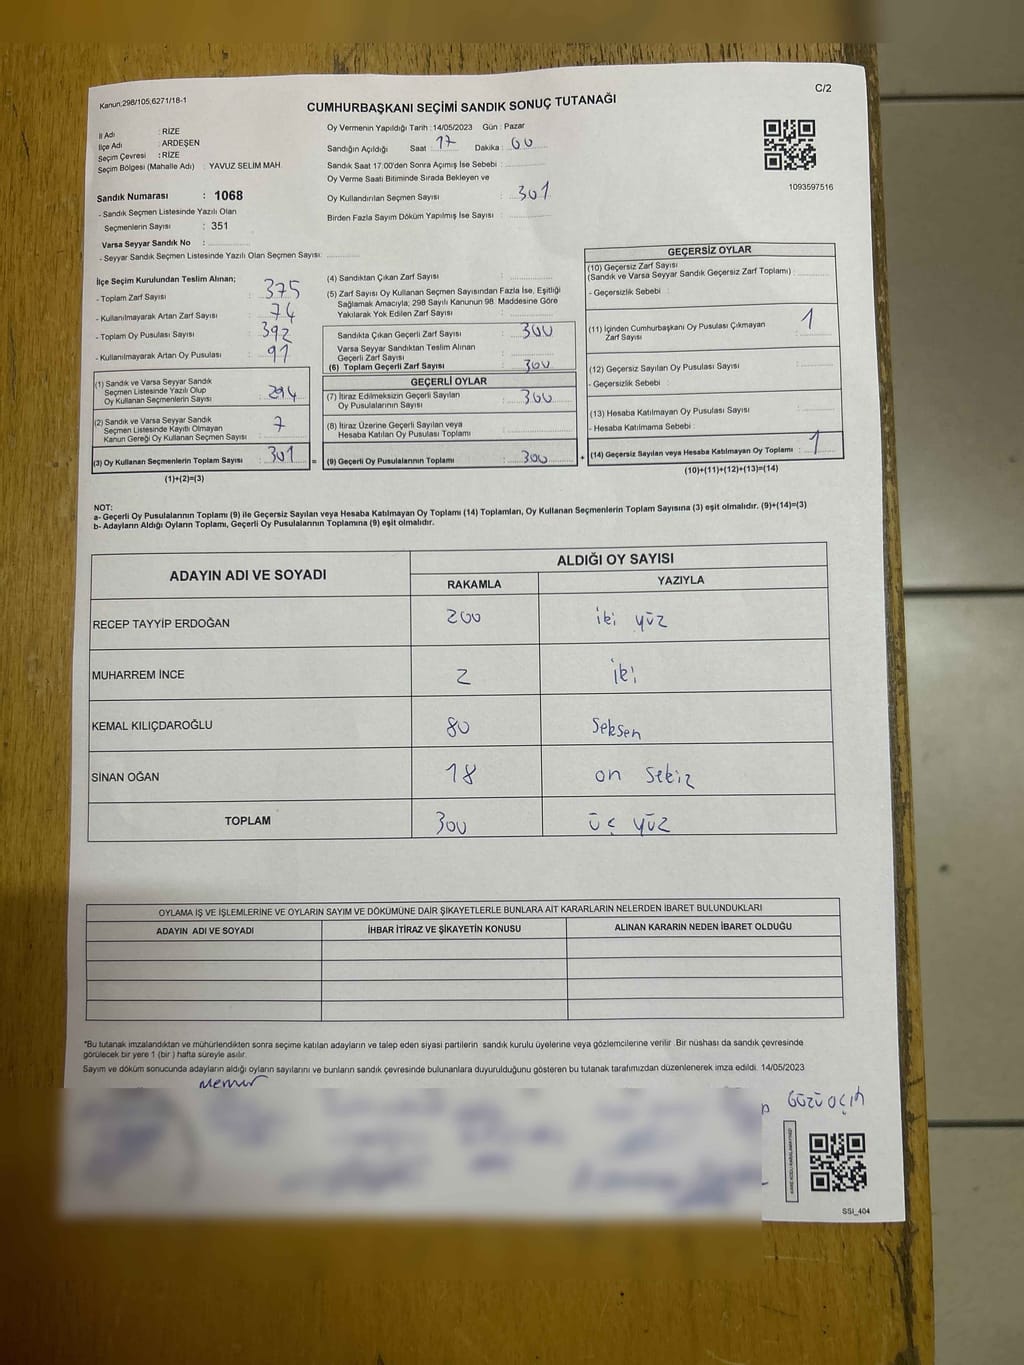 Kanun:298/105;6271/18-1
C/2
CUMHURBAŞKANI SEÇİMİ SANDIK SONUÇ TUTANAĞI
İl Adı : RİZE
İlçe Adı : ARDEŞEN
Seçim Çevresi : RİZE
Seçim Bölgesi (Mahalle Adı) : YAVUZ SELİM MAH.
Sandık Numarası : 1068
- Sandık Seçmen Listesinde Yazılı Olan
Seçmenlerin Sayısı : 351
Varsa Seyyar Sandık No :
- Seyyar Sandık Seçmen Listesinde Yazılı Olan Seçmen Sayısı:
Oy Vermenin Yapıldığı Tarih :14/05/2023 Gün : Pazar
Sandığın Açıldığı Saat : 17 Dakika : 00
Sandık Saat 17.00'den Sonra Açımış İse Sebebi :
Oy Verme Saati Bitiminde Sırada Bekleyen ve
Oy Kullandırılan Seçmen Sayısı : 301
Birden Fazla Sayım Döküm Yapılmış İse Sayısı :
1093597516
İlçe Seçim Kurulundan Teslim Alınan;
- Toplam Zarf Sayısı : 375
- Kullanılmayarak Artan Zarf Sayısı : 74
- Toplam Oy Pusulası Sayısı : 392
- Kullanılmayarak Artan Oy Pusulası : 91
(1) Sandık ve Varsa Seyyar Sandık
Seçmen Listesinde Yazılı Olup
Oy Kullanan Seçmenlerin Sayısı : 294
(2) Sandık ve Varsa Seyyar Sandık
Seçmen Listesinde Kayıtlı Olmayan
Kanun Gereği Oy Kullanan Seçmen Sayısı : 7
(3) Oy Kullanan Seçmenlerin Toplam Sayısı : 301
(1)+(2)=(3)
(4) Sandıktan Çıkan Zarf Sayısı :
(5) Zarf Sayısı Oy Kullanan Seçmen Sayısından Fazla İse, Eşitliği
Sağlamak Amacıyla; 298 Sayılı Kanunun 98. Maddesine Göre
Yakılarak Yok Edilen Zarf Sayısı :
Sandıkta Çıkan Geçerli Zarf Sayısı : 300
Varsa Seyyar Sandıktan Teslim Alınan
Geçerli Zarf Sayısı :
(6) Toplam Geçerli Zarf Sayısı : 300
GEÇERLİ OYLAR
(7) İtiraz Edilmeksizin Geçerli Sayılan
Oy Pusulalarının Sayısı : 300
(8) İtiraz Üzerine Geçerli Sayılan veya
Hesaba Katılan Oy Pusulası Toplamı :
= (9) Geçerli Oy Pusulalarının Toplamı : 300
GEÇERSİZ OYLAR
(10) Geçersiz Zarf Sayısı
(Sandık ve Varsa Seyyar Sandık Geçersiz Zarf Toplamı) :
- Geçersizlik Sebebi :
(11) İçinden Cumhurbaşkanı Oy Pusulası Çıkmayan
Zarf Sayısı : 1
(12) Geçersiz Sayılan Oy Pusulası Sayısı :
- Geçersizlik Sebebi :
(13) Hesaba Katılmayan Oy Pusulası Sayısı :
- Hesaba Katılmama Sebebi :
+ (14) Geçersiz Sayılan veya Hesaba Katılmayan Oy Toplamı : 1
(10)+(11)+(12)+(13)=(14)
NOT:
a- Geçerli Oy Pusulalarının Toplamı (9) ile Geçersiz Sayılan veya Hesaba Katılmayan Oy Toplamı (14) Toplamları, Oy Kullanan Seçmenlerin Toplam Sayısına (3) eşit olmalıdır. (9)+(14)=(3)
b- Adayların Aldığı Oyların Toplamı, Geçerli Oy Pusulalarının Toplamına (9) eşit olmalıdır.
ADAYIN ADI VE SOYADI ALDIĞI OY SAYISI
RAKAMLA YAZIYLA
RECEP TAYYİP ERDOĞAN 200 iki yüz
MUHARREM İNCE 2 iki
KEMAL KILIÇDAROĞLU 80 Seksen
SİNAN OĞAN 18 on sekiz
TOPLAM 300 üç yüz
OYLAMA İŞ VE İŞLEMLERİNE VE OYLARIN SAYIM VE DÖKÜMÜNE DAİR ŞİKAYETLERLE BUNLARA AİT KARARLARIN NELERDEN İBARET BULUNDUKLARI
ADAYIN ADI VE SOYADI İHBAR İTİRAZ VE ŞİKAYETİN KONUSU ALINAN KARARIN NEDEN İBARET OLDUĞU
*Bu tutanak imzalandıktan ve mühürlendikten sonra seçime katılan adayların ve talep eden siyasi partilerin sandık kurulu üyelerine veya gözlemcilerine verilir .Bir nüshası da sandık çevresinde
görülecek bir yere 1 (bir ) hafta süreyle asılır.
Sayım ve döküm sonucunda adayların aldığı oyların sayılarını ve bunların sandık çevresinde bulunanlara duyurulduğunu gösteren bu tutanak tarafımızdan düzenlenerek imza edildi. 14/05/2023
memur
GÖZÜAÇIK
SSI_404